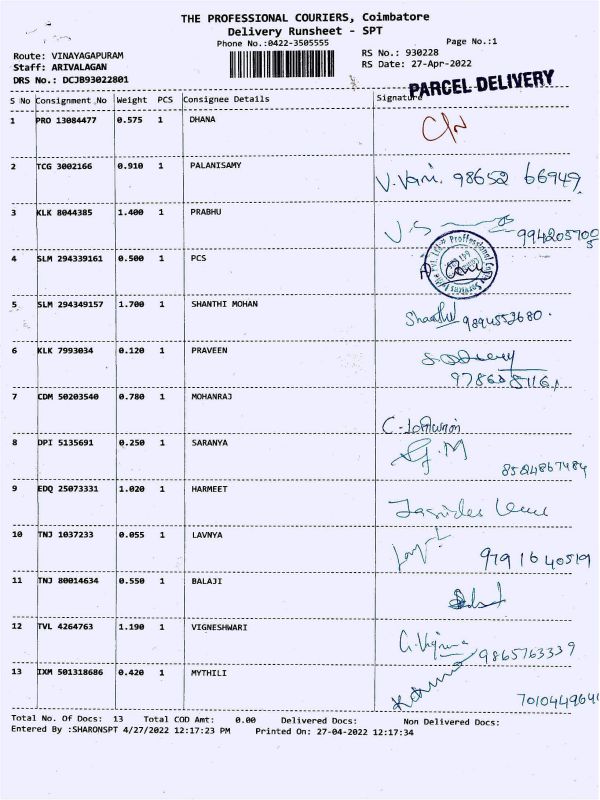 THE PROFESSIONAL COURIERS, Coimbatore
Delivery Runsheet - SPT
Phone No.:0422-3505555
Page No.:1
Route: VINAYAGAPURAM
RS No.: 930228
Staff: ARIVALAGAN
RS Date: 27-Apr-2022
DRS No.: DCJB93022801
PARCEL DELIVERY
S No Consignment No Weight PCS Consignee Details Signature
1 PRO 13084477 0.575 1 DHANA
2 TCG 3002166 0.910 1 PALANISAMY
V. Vani. 98652 66949
3 KLK 8044385 1.400 1 PRABHU
4 SLM 294339161 0.500 1 PCS
5 SLM 294349157 1.700 1 SHANTHI MOHAN
Shanthi 9894552680.
6 KLK 7993034 0.120 1 PRAVEEN
7 CDM 50203540 0.780 1 MOHANRAJ
8 DPI 5135691 0.250 1 SARANYA
8524867484
9 EDQ 25073331 1.020 1 HARMEET
10 TNJ 1037233 0.055 1 LAVNYA
9791640519
11 TNJ 80014634 0.550 1 BALAJI
12 TVL 4264763 1.190 1 VIGNESHWARI
9865763339
13 IXM 501318686 0.420 1 MYTHILI
Total No. Of Docs: 13 Total COD Amt: 0.00 Delivered Docs: Non Delivered Docs:
Entered By :SHARONSPT 4/27/2022 12:17:23 PM Printed On: 27-04-2022 12:17:34